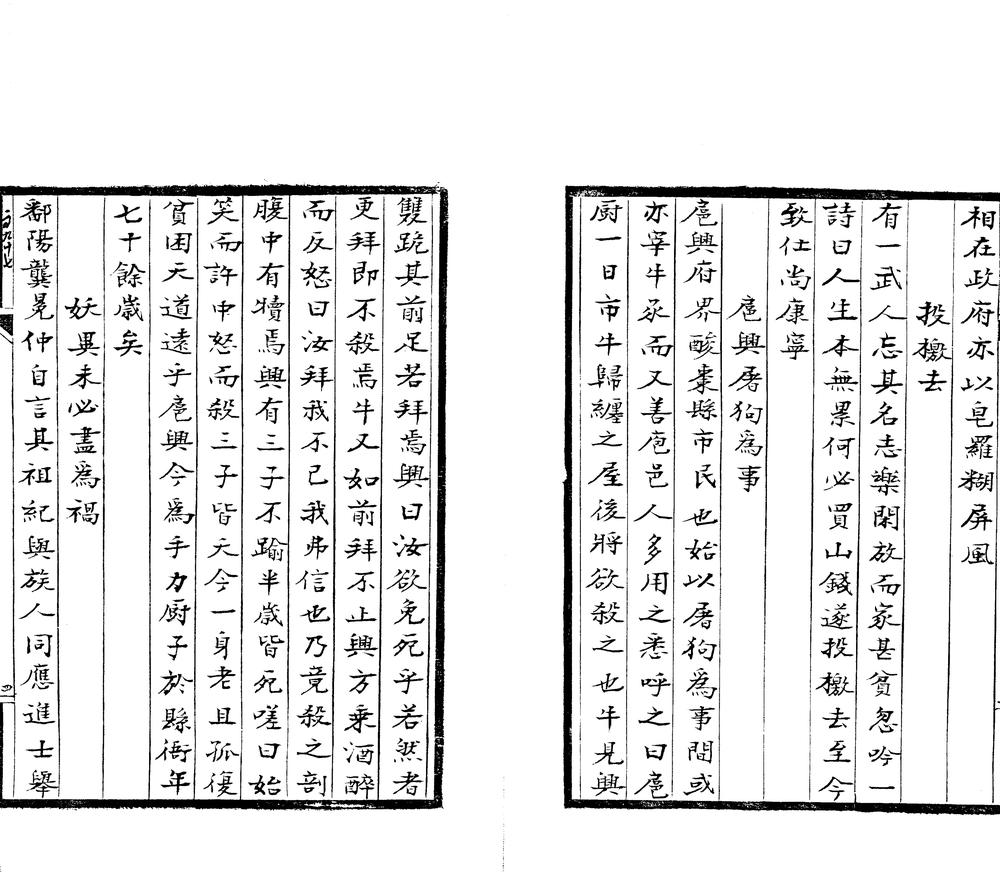 相在政府亦以皂羅糊屏風
投檄去
有一武人忘其名志樂閑放而家甚貧忽吟一
詩曰人生本無累何必買山錢遂投檄去至今
致仕尚康寧
扈興屠狗為事
扈興府界酸棗縣市民也始以屠狗為事間或
亦宰牛豕而又善庖邑人多用之悉呼之曰扈
厨一日市牛歸纏之屋後將欲殺之也牛見興
雙跪其前足若拜焉興曰汝欲免死乎若然者
更拜即不殺焉牛又如前拜不止興方乗酒醉
而反怒曰汝拜我不已我弗信也乃竟殺之剖
腹中有犢焉興有三子不踰半歲皆死嗟曰始
笑而許中怒而殺三子皆夭今一身老且孤復
貧困天道遠乎扈興今為手力厨子於縣衙年
七十餘歲矣
妖異未必盡為禍
鄱陽龔冕仲自言其祖紀與族人同應進士舉